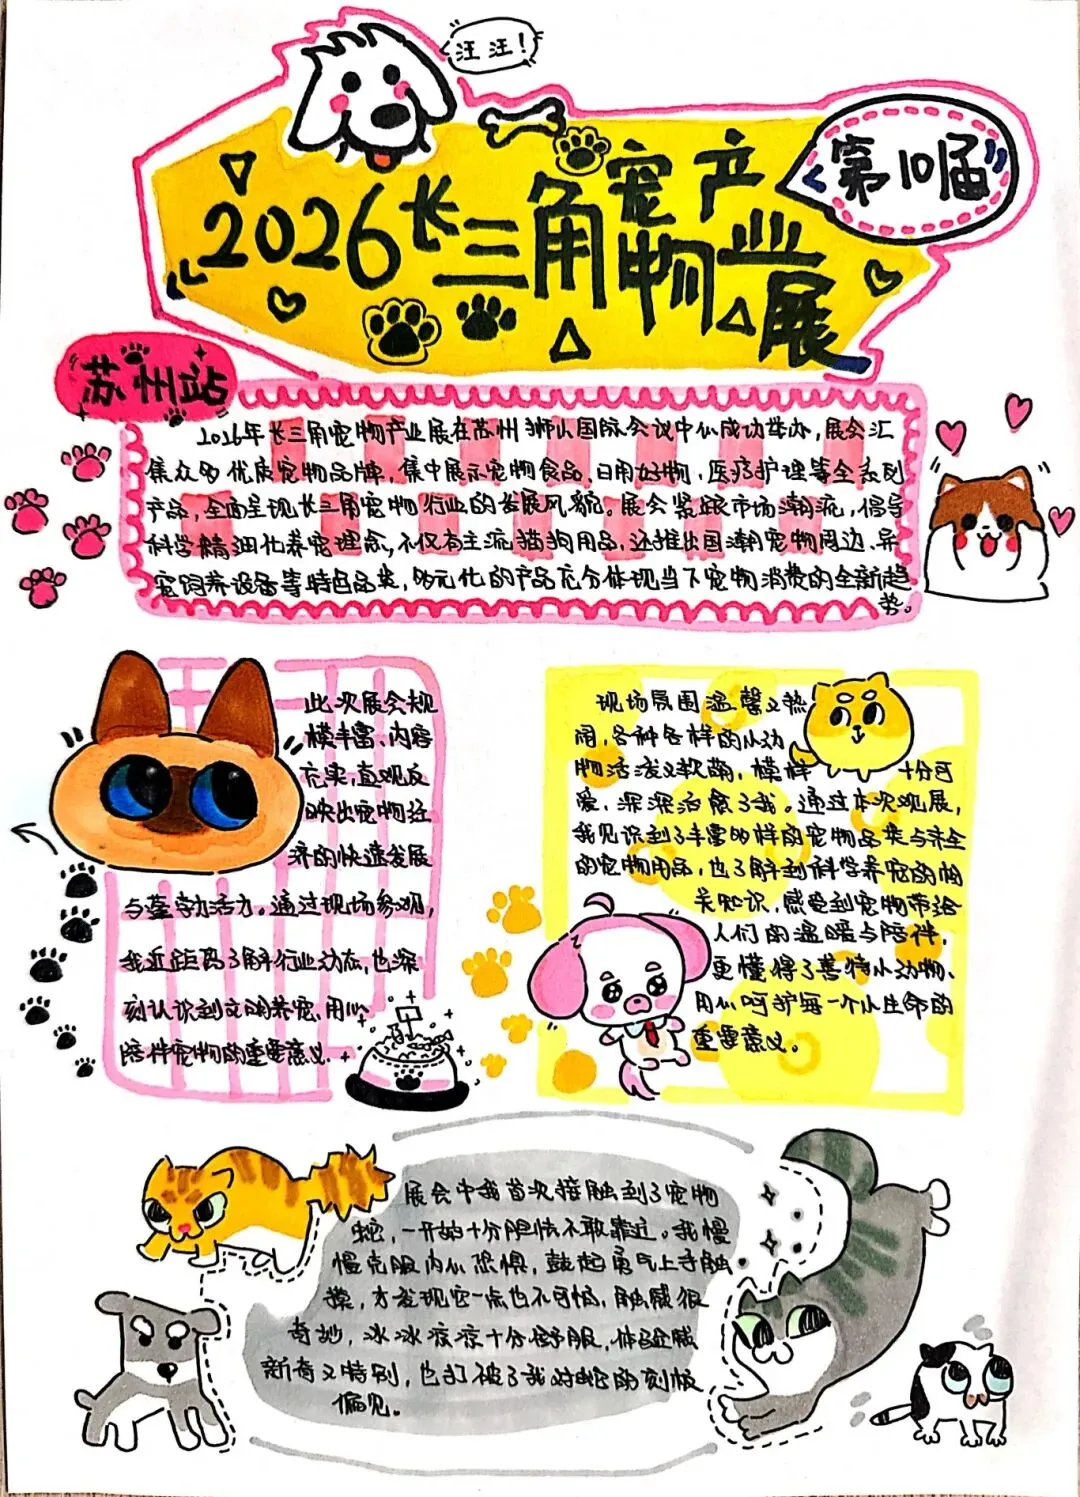 汪汪！
第10届
2026长三角宠物产业展
苏州站
2026年长三角宠物产业展在苏州狮山国际会议中心成功举办，展会汇
集众多优质宠物品牌，集中展示宠物食品、日用好物、医疗护理等全系列
产品，全面呈现长三角宠物行业的发展风貌。展会紧跟市场潮流，倡导
科学精细化养宠理念，不仅有主流猫狗用品，还推出国潮宠物周边、异
宠饲养设备等特色品类，多元化的产品充分体现当下宠物消费的全新趋
势。
此次展会规
模丰富、内容
充实，直观反
映出宠物经
济的快速发展
与蓬勃活力。通过现场参观，
我近距离了解行业动态，也深
刻认识到文明养宠、用心
陪伴宠物的重要意义.
现场氛围温馨又热
闹，各种各样的小动
物活泼又软萌，模样十分可
爱，深深治愈了我。通过本次观展，
我见识到了丰富多样的宠物品类与齐全
的宠物用品，也了解到科学养宠的相
关知识，感受到宠物带给
人们的温暖与陪伴，
更懂得了善待小动物、
用心呵护每一个小生命的
重要意义。
展会中我首次接触到了宠物
蛇，一开始十分胆怯不敢靠近。我慢
慢克服内心恐惧，鼓起勇气上手触
摸，才发现它一点也不可怕，触感很
奇妙，冰冰凉凉十分舒服，体验感
新奇又特别，也打破了我对蛇的刻板
偏见。